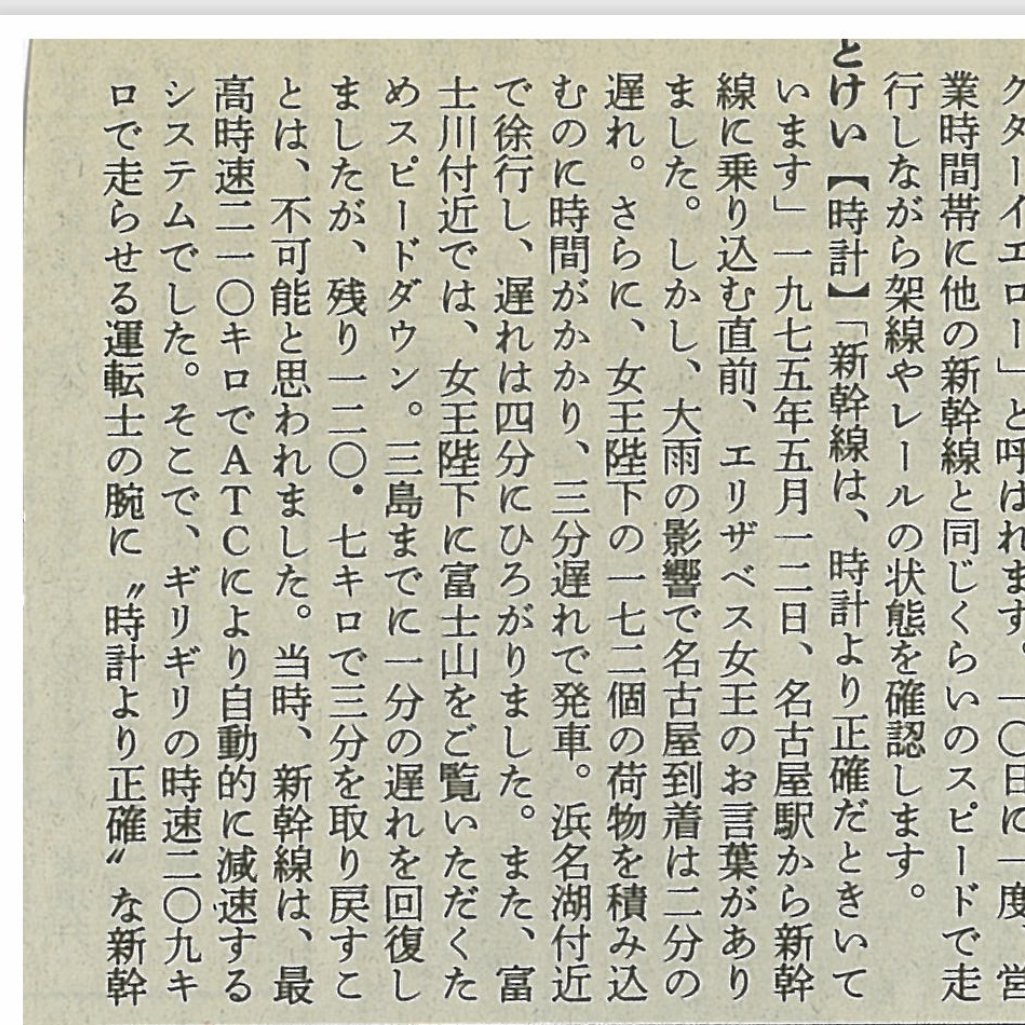 クターイエロー」と呼ばれます。一〇日に一度、営
業時間帯に他の新幹線と同じくらいのスピードで走
行しながら架線やレールの状態を確認します。
とけい【時計】「新幹線は、時計より正確だときいて
います」一九七五年五月一二日、名古屋駅から新幹
線に乗り込む直前、エリザベス女王のお言葉があり
ました。しかし、大雨の影響で名古屋到着は二分の
遅れ。さらに、女王陛下の一七二個の荷物を積み込
むのに時間がかかり、三分遅れで発車。浜名湖付近
で徐行し、遅れは四分にひろがりました。また、富
士川付近では、女王陛下に富士山をご覧いただくた
めスピードダウン。三島までに一分の遅れを回復し
ましたが、残り一二〇・七キロで三分を取り戻すこ
とは、不可能と思われました。当時、新幹線は、最
高時速二一〇キロでATCにより自動的に減速する
システムでした。そこで、ギリギリの時速二〇九キ
ロで走らせる運転士の腕に〝時計より正確〟な新幹